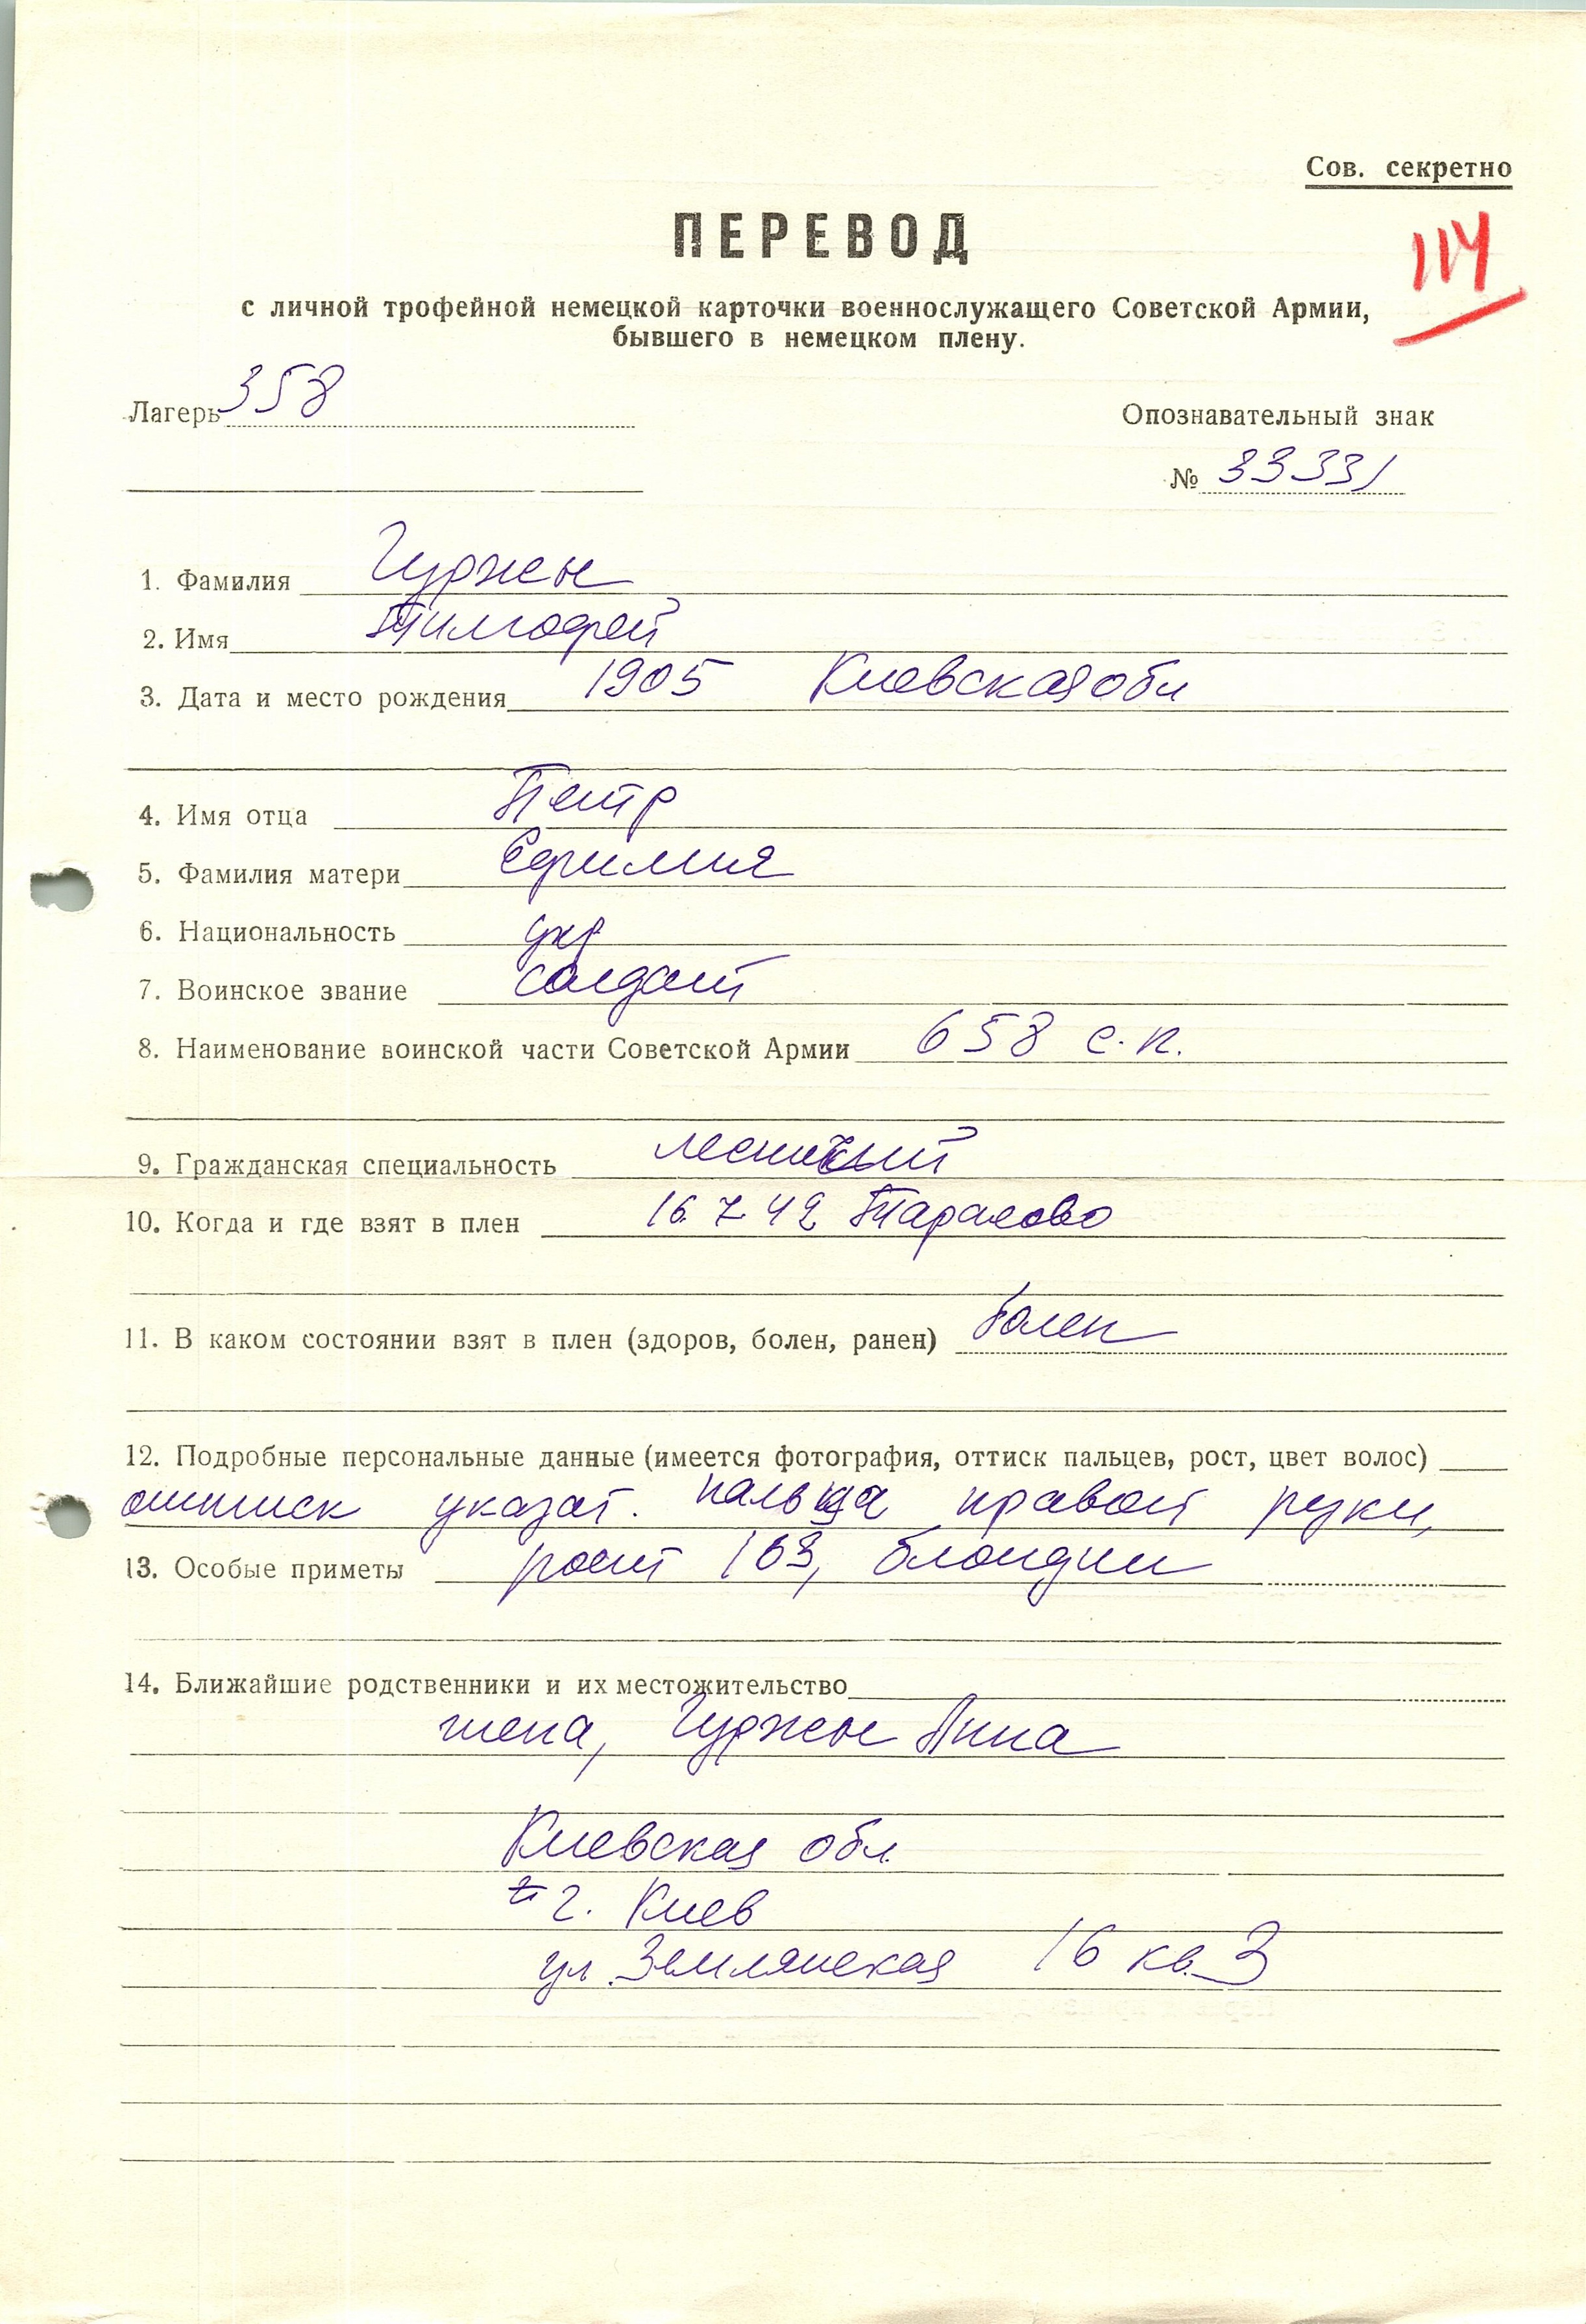 Сов. секретно
ПЕРЕВОД
114
с личной трофейной немецкой карточки военнослужащего Советской Армии,
бывшего в немецком плену.
Лагерь 358
Опознавательный знак
№ 33331
1. Фамилия Гуржен
2. Имя Тимофей
3. Дата и место рождения 1905 Киевская обл
4. Имя отца Петр
5. Фамилия матери Ефимия
6. Национальность укр
7. Воинское звание солдат
8. Наименование воинской части Советской Армии 658 с.п.
9. Гражданская специальность лесничий
10. Когда и где взят в плен 16.7.42 Тарасово
11. В каком состоянии взят в плен (здоров, болен, ранен) болен
12. Подробные персональные данные (имеется фотография, оттиск пальцев, рост, цвет волос)
оттиск указат. пальца правой руки,
13. Особые приметы рост 163, блондин
14. Ближайшие родственники и их местожительство
жена, Гуржен Анна
Киевская обл.
г. Киев
ул. Землянская 16 кв. 3